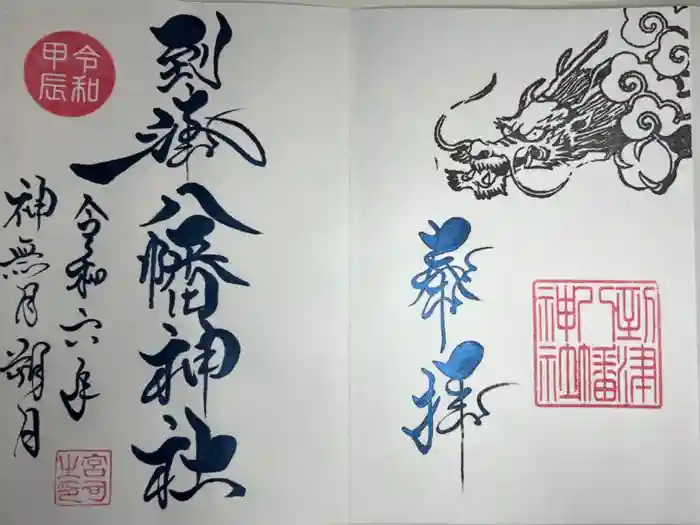 奉拝
到津八幡神社
到津八幡神社
令和六年
神無月朔月
令和
甲辰
宮司
之印